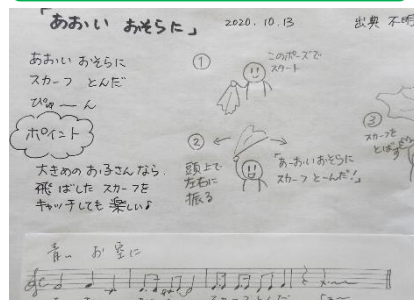 「あおい おそらに」
2020.10.13
出典 不明
あおい おそらに
スカーフ とんだ
ぴゅーん
ポイント
大きめのお子さんなら、
飛ばした スカーフを
キャッチしても 楽しい♪
①
このポーズで
スタート
②
頭上で
左右に
振る
「あーおいおそらに
スカーフ とーんだ!」
③
スカーフを
とばす
青い お空に
スカーフとんだ